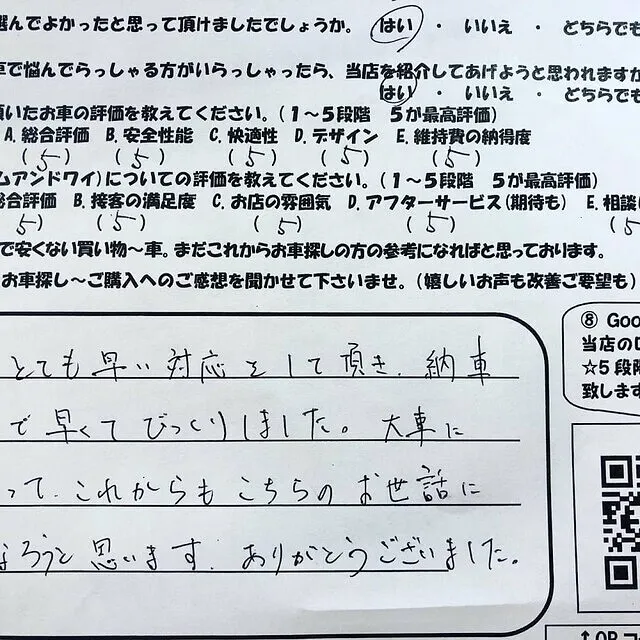 選んでよかったと思って頂けましたでしょうか。 はい ・ いいえ ・ どちらでも
車で悩んでらっしゃる方がいらっしゃったら、当店を紹介してあげようと思われますか
はい ・ いいえ ・ どちらでも
頂いたお車の評価を教えてください。(1～5段階 5が最高評価)
A. 総合評価 B. 安全性能 C. 快適性 D. デザイン E. 維持費の納得度
(5) (5) (5) (5) (5)
ムアンドワイ)についての評価を教えてください。(1～5段階 5が最高評価)
総合評価 B. 接客の満足度 C. お店の雰囲気 D. アフターサービス(期待も) E. 相談
5) (5) (5) (5) (5
で安くない買い物～車。まだこれからお車探しの方の参考になればと思っております。
お車探し～ご購入へのご感想を聞かせて下さいませ。(嬉しいお声も改善ご要望も)
とても早い対応をして頂き、納車
で早くてびっくりしました。大車に
って、これからもこちらのお世話に
なろうと思います。ありがとうございました。
⑧ Goo
当店の口
☆5段階
致します
↑QRコ